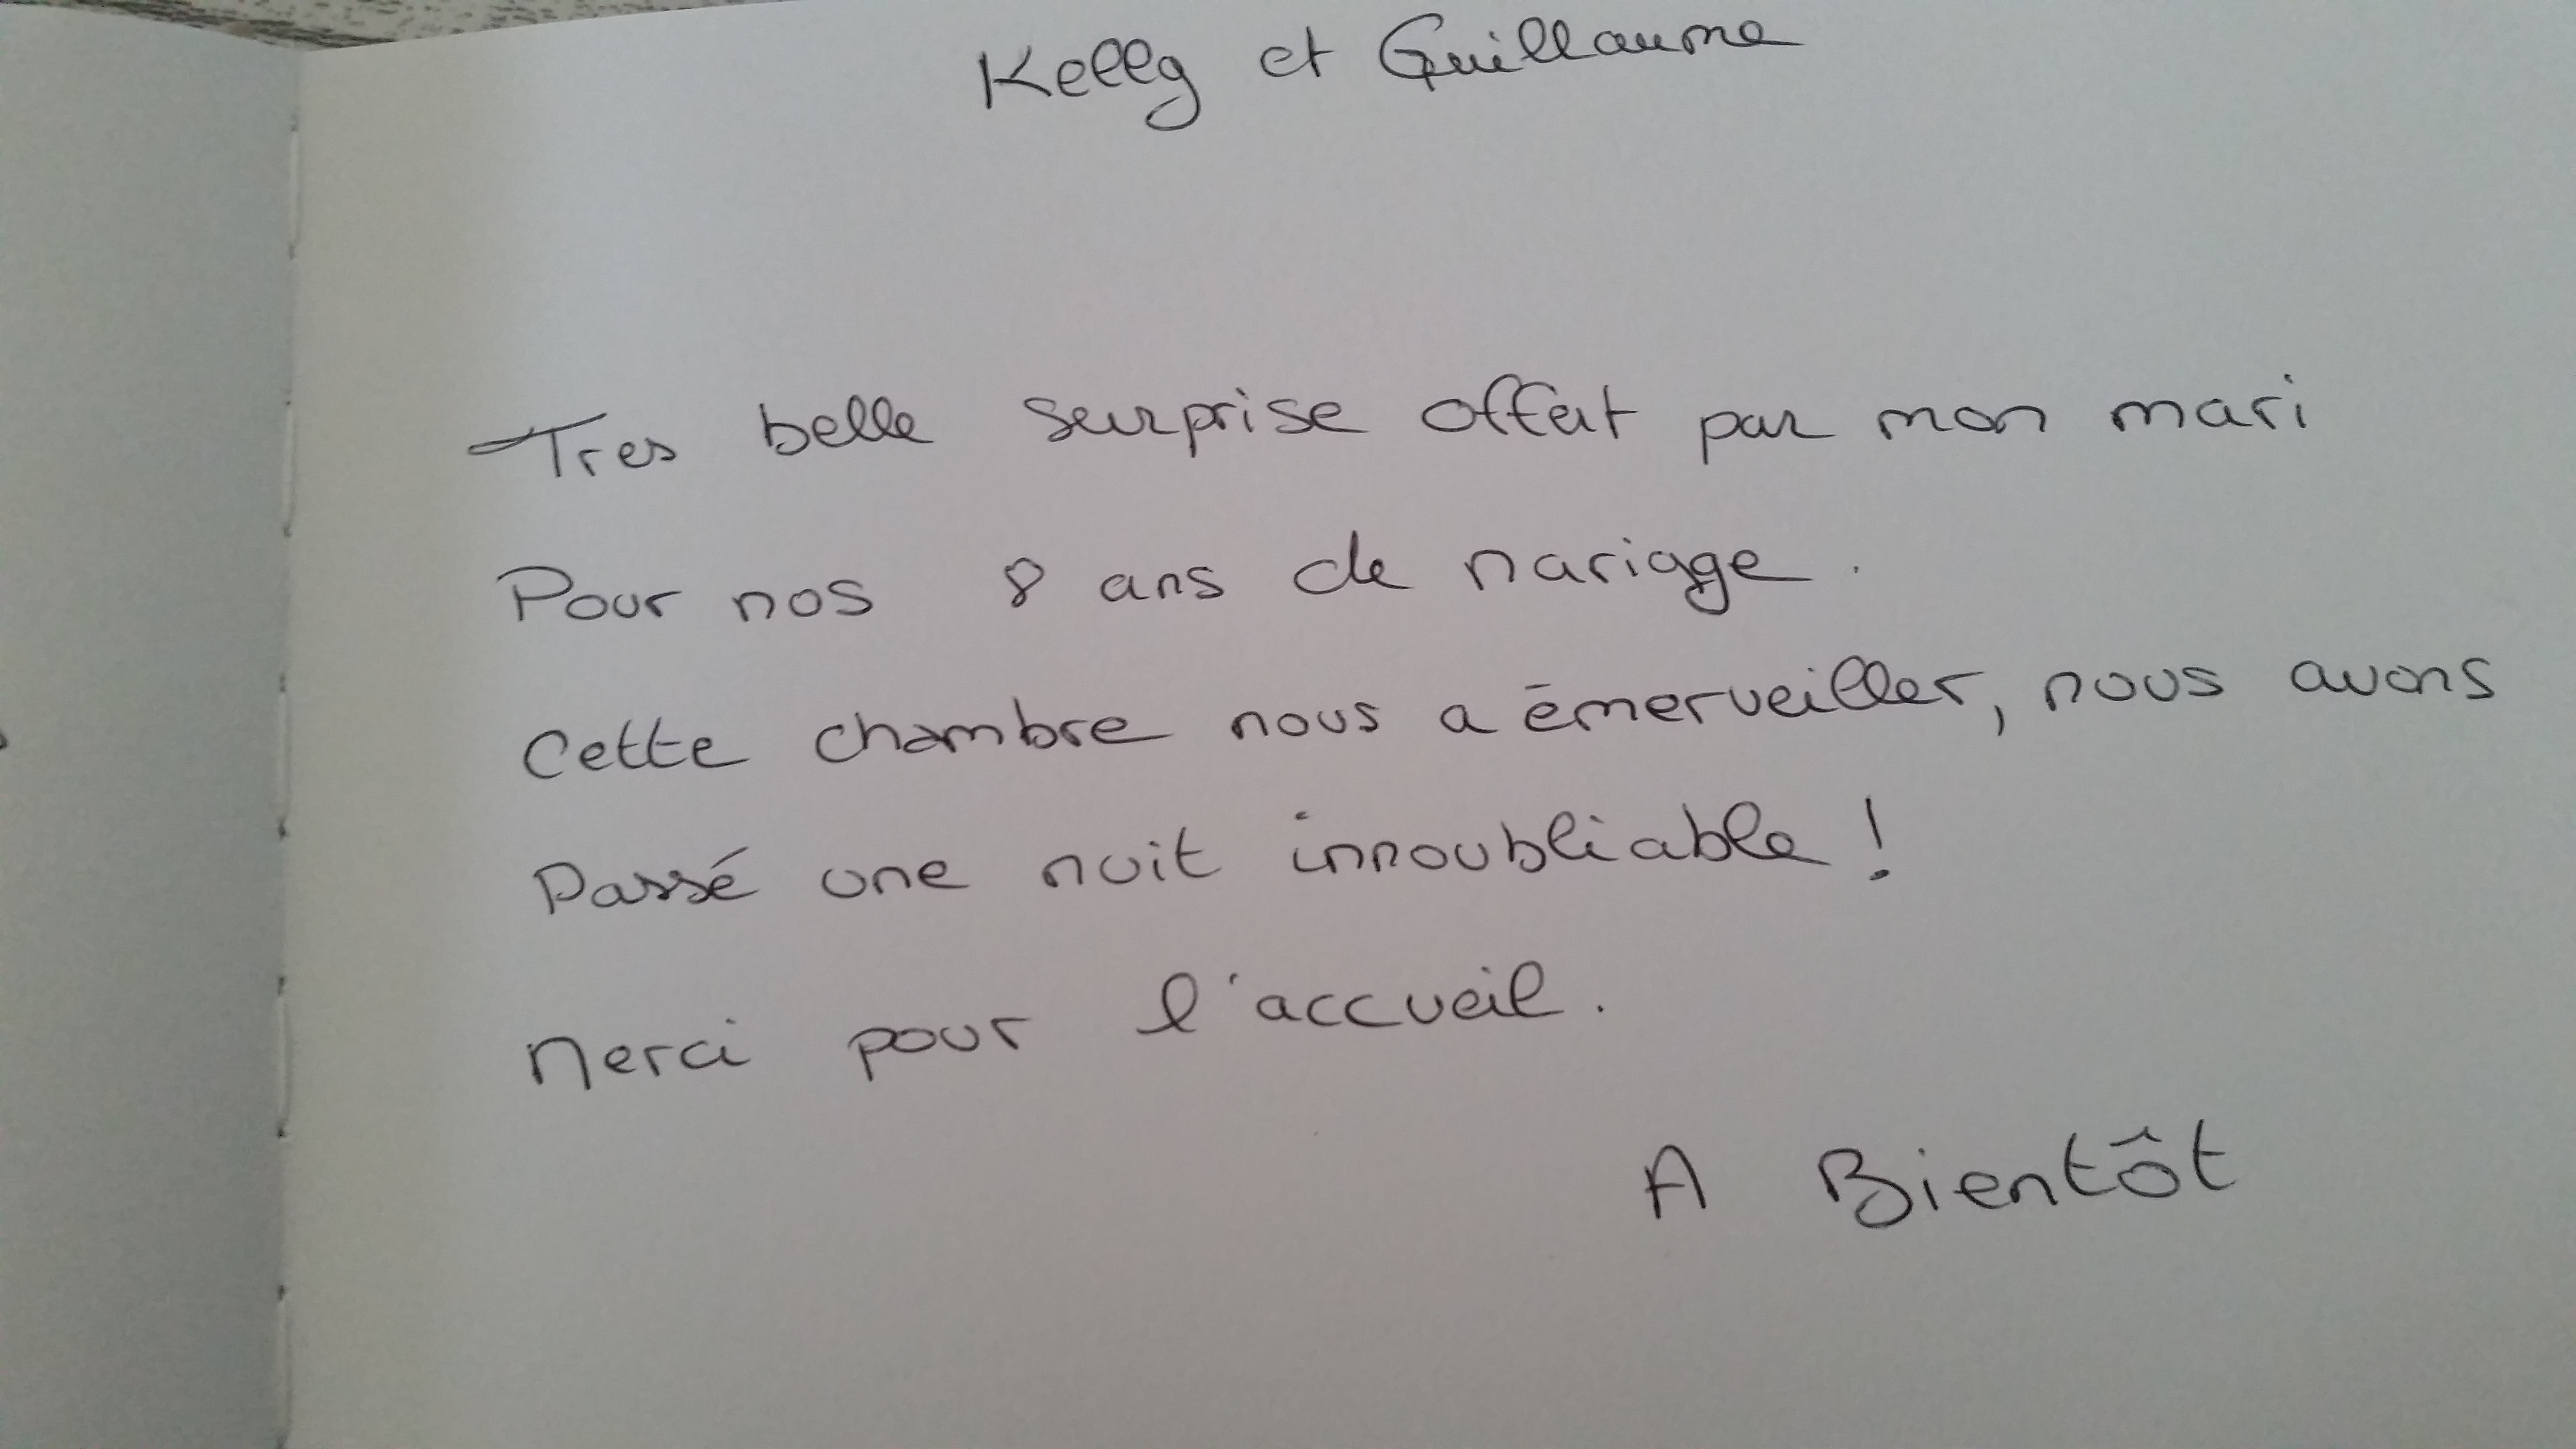 Kelly et Guillaume
Tres belle surprise offert par mon mari
Pour nos 8 ans de mariage.
Cette chambre nous a émerveiller, nous avons
Passé une nuit innoubliable !
Merci pour l'accueil.
A Bientôt